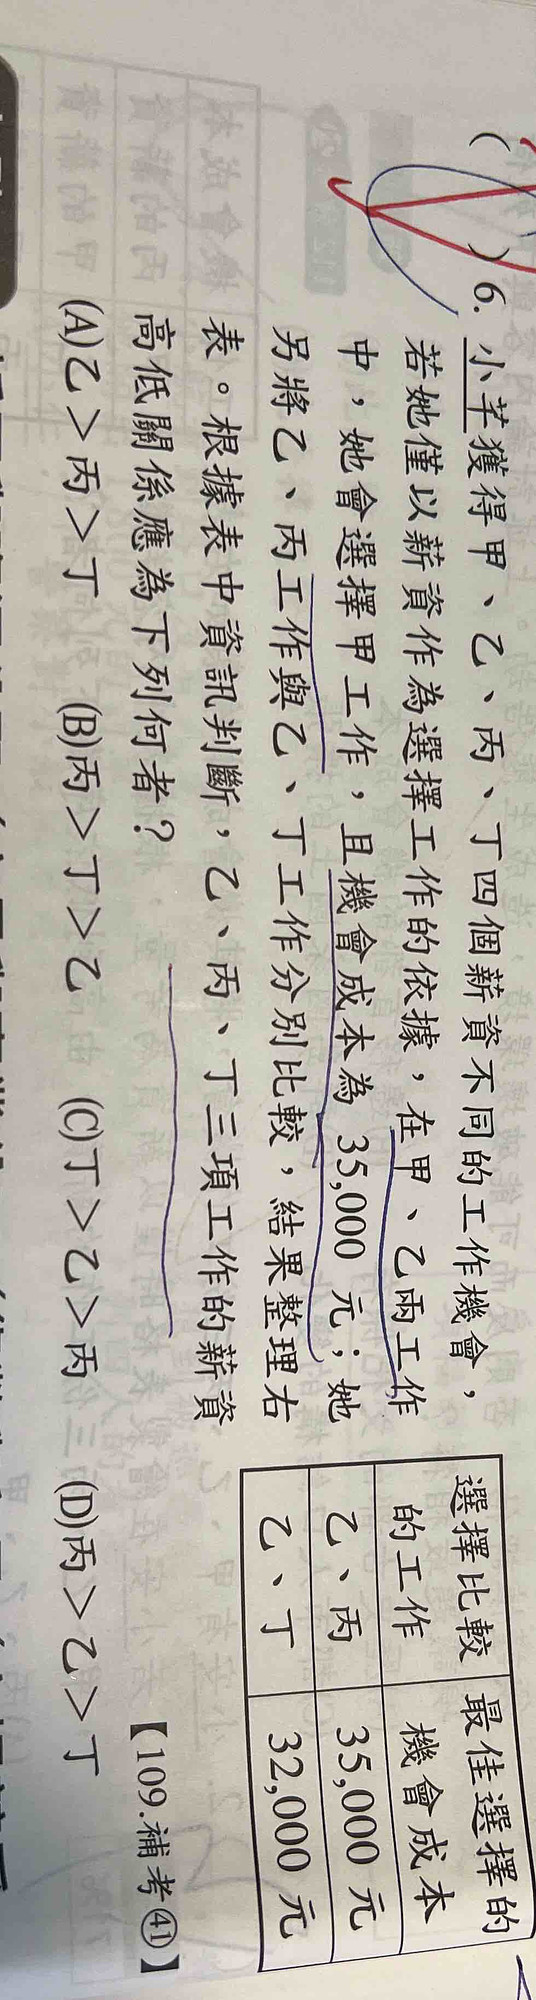 ( )6. 小芊獲得甲、乙、丙、丁四個薪資不同的工作機會，
若她僅以薪資作為選擇工作的依據，在甲、乙兩工作
中，她會選擇甲工作，且機會成本為 35,000 元；她
另將乙、丙工作與乙、丁工作分別比較，結果整理右
表。根據表中資訊判斷，乙、丙、丁三項工作的薪資
高低關係應為下列何者？
(A)乙＞丙＞丁 (B)丙＞丁＞乙 (C)丁＞乙＞丙 (D)丙＞乙＞丁
【109.補考㊶】
選擇比較的工作 最佳選擇的機會成本
乙、丙 35,000 元
乙、丁 32,000 元